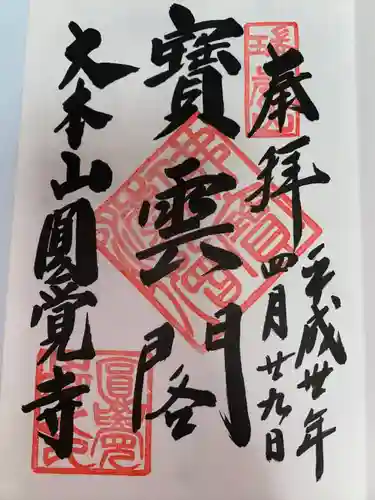 奉拝
平成卅年
四月廿九日
寶雲閣
大本山圓覚寺